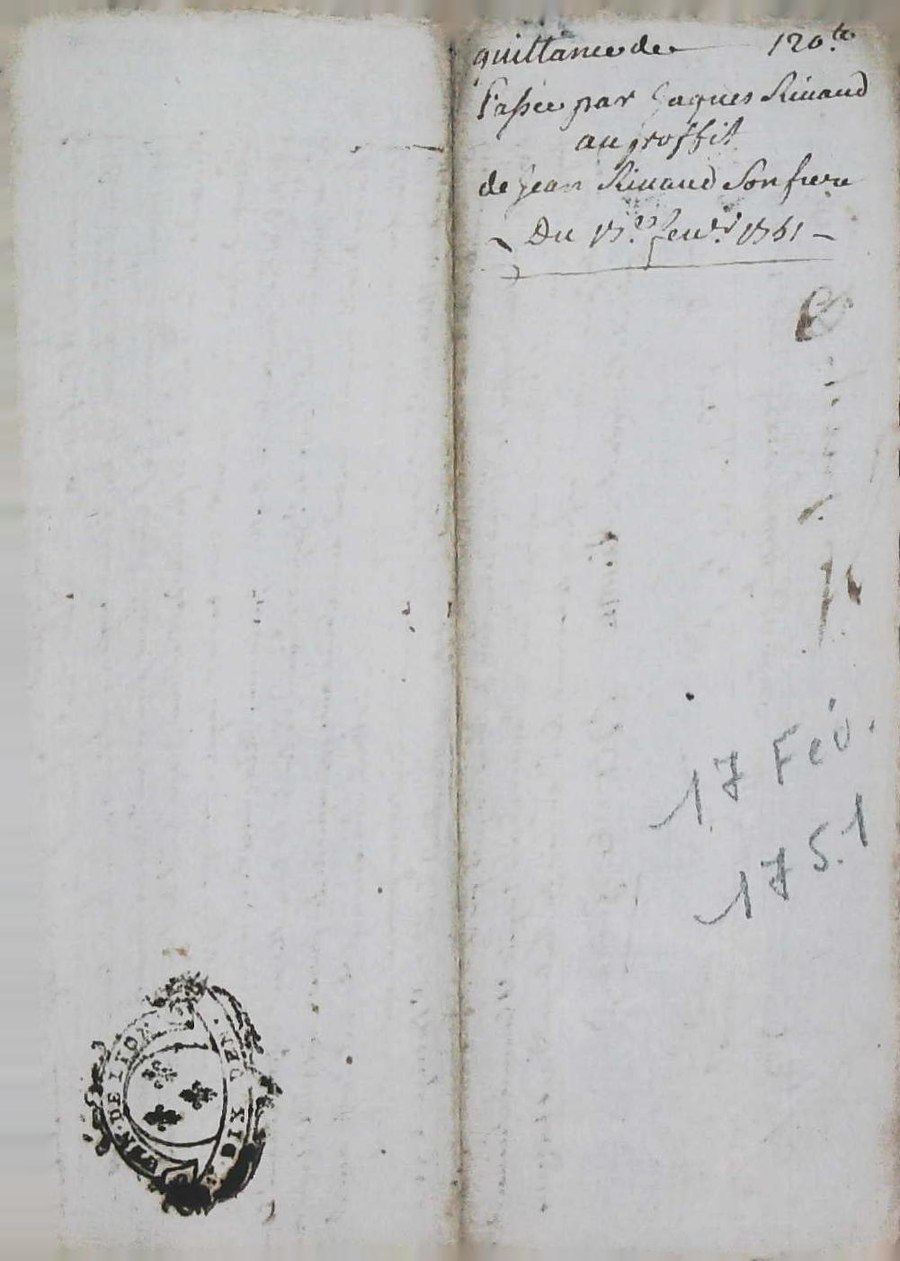 quittance de 120.ᵗᵗ
Passée par Jaques Rivaud
au proffit
de Jean Rivaud Son frere
Du 17.ᵉˢ feuᵉʳ 1751
17 Fév.
1751
GEN · DE LION
DEN · XIC